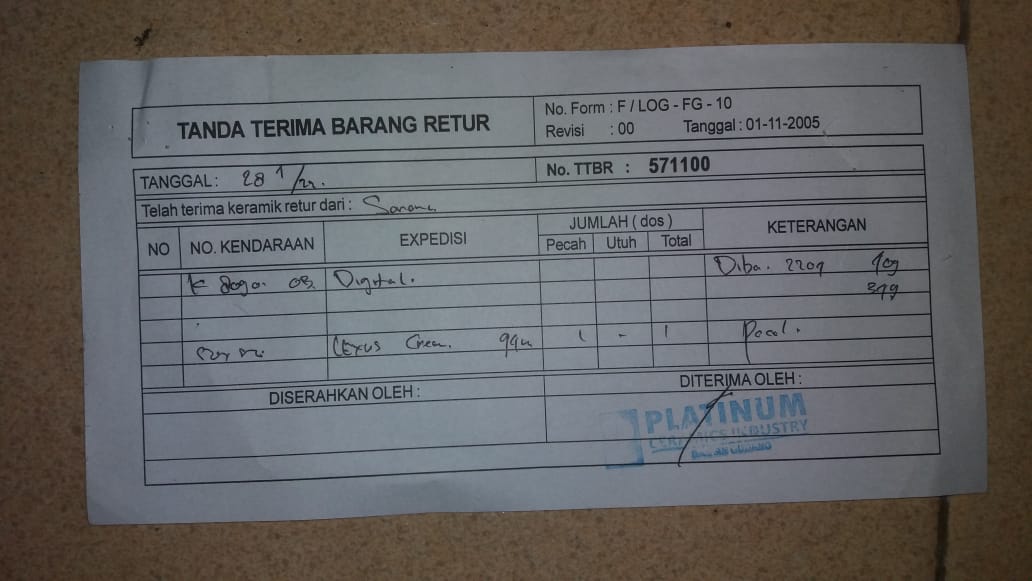 TANDA TERIMA BARANG RETUR
No. Form : F / LOG - FG - 10
Revisi : 00 Tanggal : 01-11-2005
TANGGAL : 28 1/22.
No. TTBR : 571100
Telah terima keramik retur dari :
NO NO. KENDARAAN EXPEDISI JUMLAH ( dos ) KETERANGAN
Pecah Utuh Total
Digital. Diba. 2201
Lexus Cream. 1 - 1
DISERAHKAN OLEH : DITERIMA OLEH :
PLATINUM
CERAMICS INDUSTRY